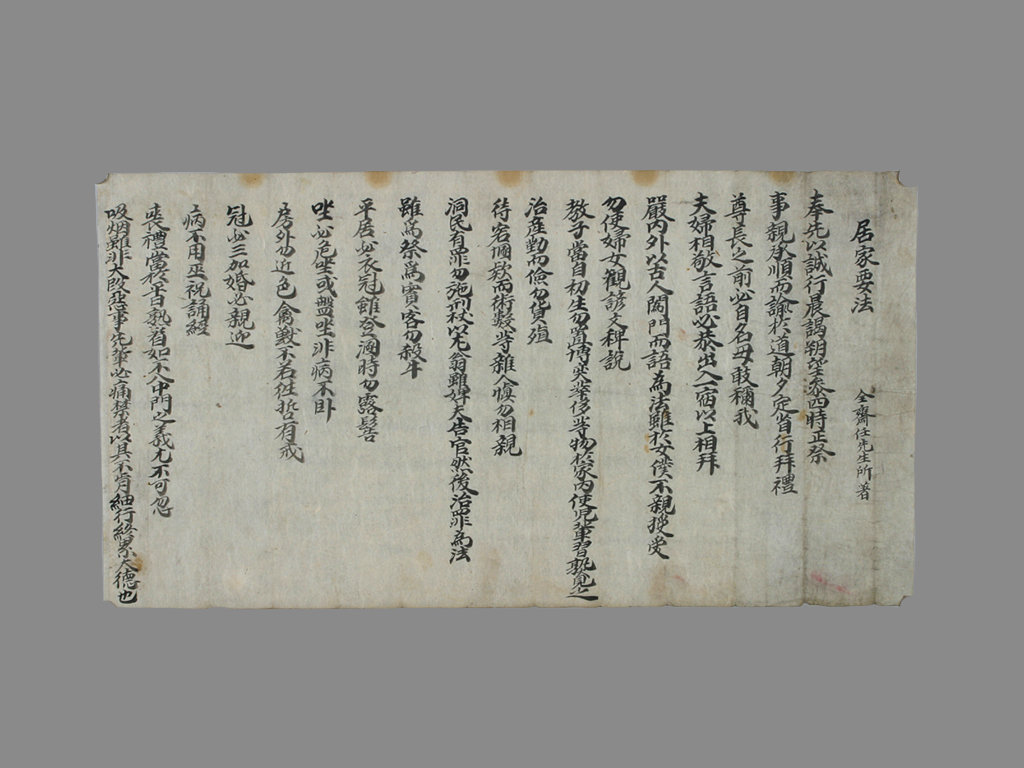 居家要法
全齋任先生所著
奉先以誠行晨謁朔望參四時正祭
事親承順而諭於道朝夕定省行拜禮
尊長之前必自名毋敢稱我
夫婦相敬言語必恭出入宿以上相拜
嚴內外以古人闔門而語為法雖於女僕不親授受
勿使婦女觀諺文稗說
教子當自初生勿置博奕華侈等物於家內使兒輩習熟見之
治產勤而儉勿貨殖
待客適款而術數等雜人愼勿相親
洞民有罪勿施刑杖以尤翁雖婢夫告官然後治罪為法
雖為祭為賓客勿殺牛
平居必衣冠雖登溷時勿露髻
坐必危坐或盤坐非病不臥
房外勿近色禽獸不若往哲有戒
冠必三加婚必親迎
病不用巫祝誦經
喪禮當於百執省如不入中門之義尤不可忽
吸烟雖非大段惡事先輩必痛禁者以其不肯細行終累大德也